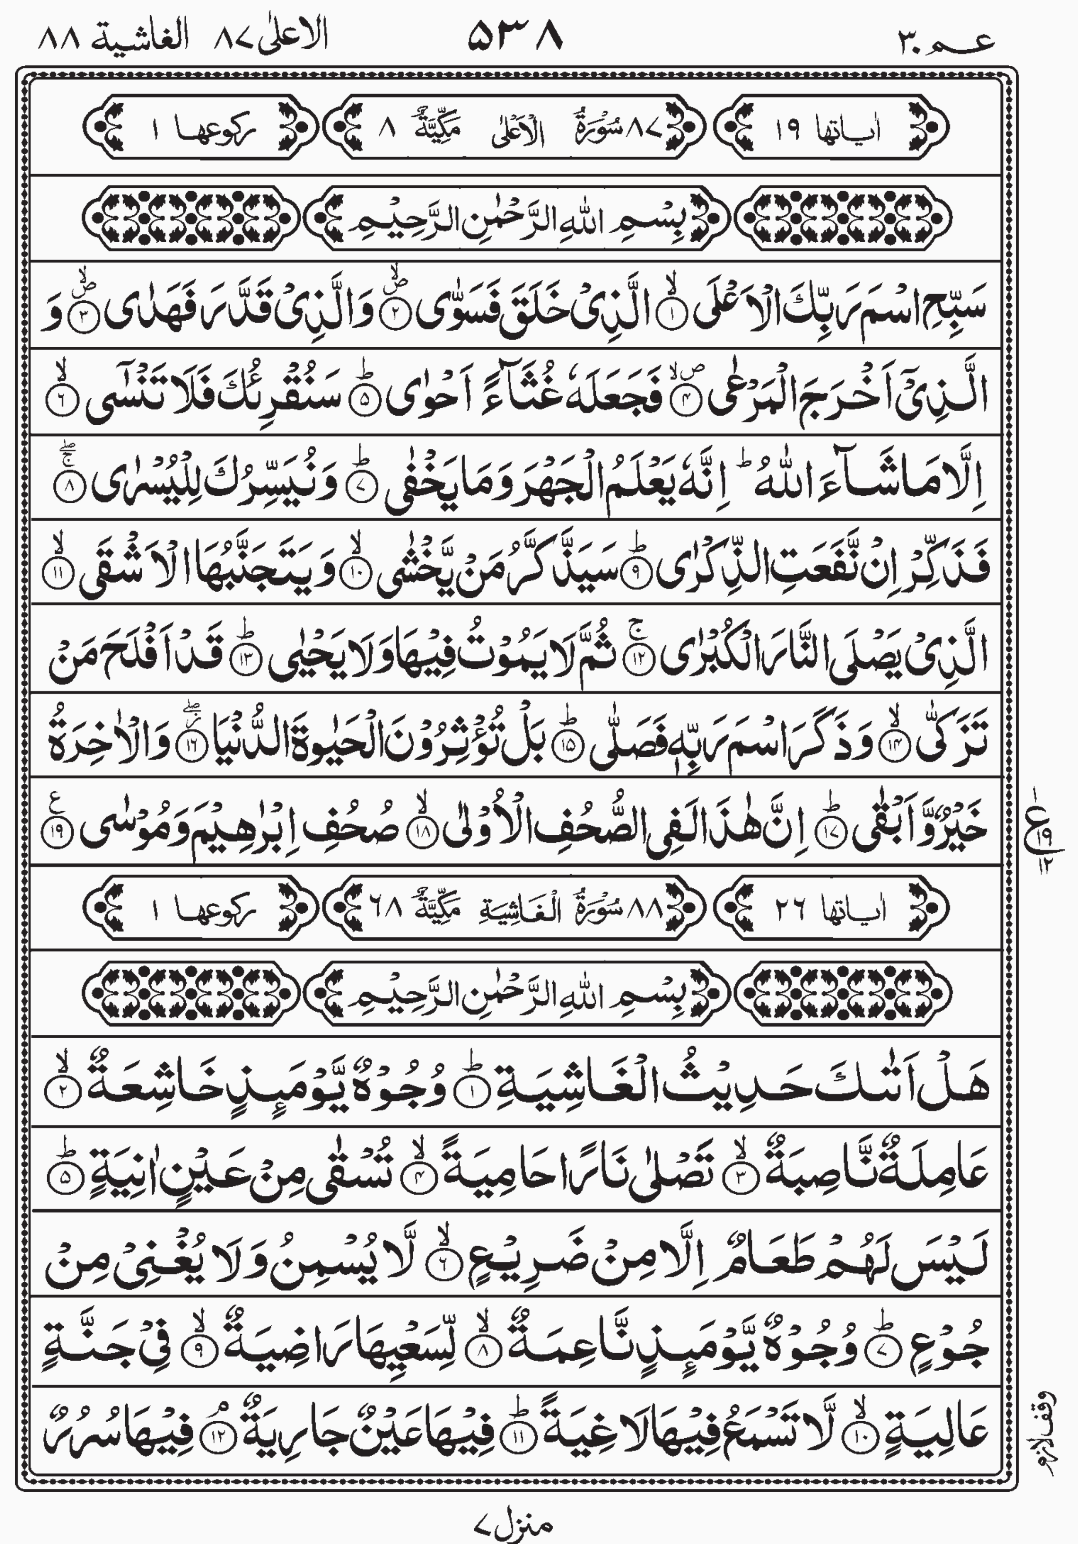 عم ٣٠ ٥٣٨ الاعلىٰ ٨٧ الغاشية ٨٨
اٰياتها ١٩ ٨٧ سُوْرَةُ الْاَعْلٰى مَكِّيَّةٌ ٨ ركوعها ١
بِسْمِ اللّٰهِ الرَّحْمٰنِ الرَّحِيْمِ
سَبِّحِ اسْمَ رَبِّكَ الْاَعْلَى ۙ‏﴿١﴾ الَّذِىْ خَلَقَ فَسَوّٰى ۙ‏ۖ﴿٢﴾ وَالَّذِىْ قَدَّرَ فَهَدٰى ۙ‏ۖ﴿٣﴾ وَ
الَّذِىْۤ اَخْرَجَ الْمَرْعٰى ۙ‏ۖ﴿٤﴾ فَجَعَلَهٗ غُثَآءً اَحْوٰى ؕ‏﴿٥﴾ سَنُقْرِئُكَ فَلَا تَنْسٰٓى ۙ‏﴿٦﴾
اِلَّا مَا شَآءَ اللّٰهُ ؕ اِنَّهٗ يَعْلَمُ الْجَهْرَ وَمَا يَخْفٰى ؕ‏﴿٧﴾ وَنُيَسِّرُكَ لِلْيُسْرٰى ۚ‏ۖ﴿٨﴾
فَذَكِّرْ اِنْ نَّفَعَتِ الذِّكْرٰى ؕ‏﴿٩﴾ سَيَذَّكَّرُ مَنْ يَّخْشٰى ۙ‏﴿١٠﴾ وَيَتَجَنَّبُهَا الْاَشْقَى ۙ‏﴿١١﴾
الَّذِىْ يَصْلَى النَّارَ الْكُبْرٰى ۚ‏﴿١٢﴾ ثُمَّ لَا يَمُوْتُ فِيْهَا وَلَا يَحْيٰى ؕ‏﴿١٣﴾ قَدْ اَفْلَحَ مَنْ
تَزَكّٰى ۙ‏﴿١٤﴾ وَذَكَرَ اسْمَ رَبِّهٖ فَصَلّٰى ؕ‏﴿١٥﴾ بَلْ تُؤْثِرُوْنَ الْحَيٰوةَ الدُّنْيَا ۖ‏﴿١٦﴾ وَالْاٰخِرَةُ
خَيْرٌ وَّاَبْقٰى ؕ‏﴿١٧﴾ اِنَّ هٰذَا لَفِى الصُّحُفِ الْاُوْلٰى ۙ‏﴿١٨﴾ صُحُفِ اِبْرٰهِيْمَ وَمُوْسٰى ‏﴿١٩﴾ ع
١ ع ١٩ ١٢
اٰياتها ٢٦ ٨٨ سُوْرَةُ الْغَاشِيَةِ مَكِّيَّةٌ ٦٨ ركوعها ١
بِسْمِ اللّٰهِ الرَّحْمٰنِ الرَّحِيْمِ
هَلْ اَتٰىكَ حَدِيْثُ الْغَاشِيَةِ ؕ‏﴿١﴾ وُجُوْهٌ يَّوْمَئِذٍ خَاشِعَةٌ ۙ‏﴿٢﴾
عَامِلَةٌ نَّاصِبَةٌ ۙ‏﴿٣﴾ تَصْلٰى نَارًا حَامِيَةً ۙ‏﴿٤﴾ تُسْقٰى مِنْ عَيْنٍ اٰنِيَةٍ ؕ‏﴿٥﴾
لَيْسَ لَهُمْ طَعَامٌ اِلَّا مِنْ ضَرِيْعٍ ۙ‏﴿٦﴾ لَّا يُسْمِنُ وَلَا يُغْنِىْ مِنْ
جُوْعٍ ؕ‏﴿٧﴾ وُجُوْهٌ يَّوْمَئِذٍ نَّاعِمَةٌ ۙ‏﴿٨﴾ لِّسَعْيِهَا رَاضِيَةٌ ۙ‏﴿٩﴾ فِىْ جَنَّةٍ
عَالِيَةٍ ۙ‏﴿١٠﴾ لَّا تَسْمَعُ فِيْهَا لَاغِيَةً ؕ‏﴿١١﴾ فِيْهَا عَيْنٌ جَارِيَةٌ ۘ‏﴿١٢﴾ فِيْهَا سُرُرٌ
وقف لازم
منزل ٧